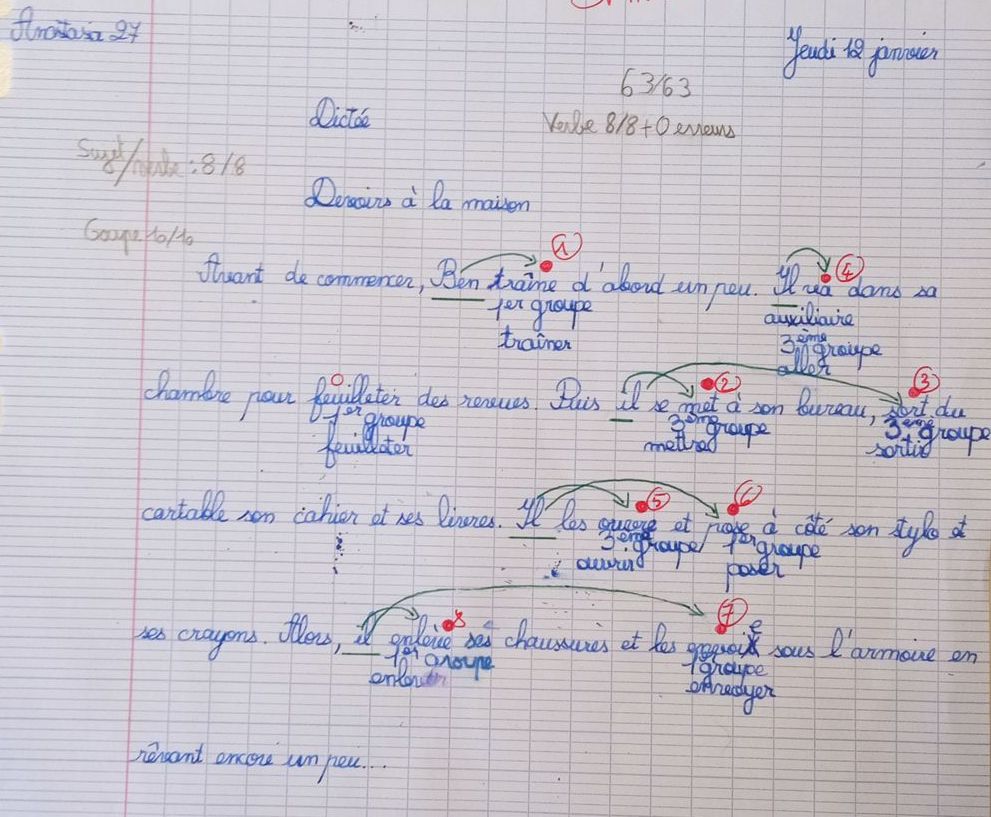 Anastasia 27
Jeudi 12 janvier
63/63
Dictée
Verbe 8/8 + 0 erreurs
Sujet/verbe : 8/8
Devoirs à la maison
Goupe 10/10
1 4
Avant de commencer, Ben traîne d'abord un peu. Il va dans sa
1er groupe auxiliaire
traîner 3ème groupe
aller
2 3
chambre pour feuilleter des revues. Puis il se met à son bureau, sort du
1er groupe 3ème groupe 3ème groupe
feuilleter mettre sortir
5 6
cartable son cahier et ses livres. Il les ouvre et pose à côté son stylo et
3ème groupe 1er groupe
ouvrir poser
8 7
ses crayons. Alors, il enlève ses chaussures et les envoie sous l'armoire en
1er groupe 1 groupe
enlever
rêvant encore un peu...